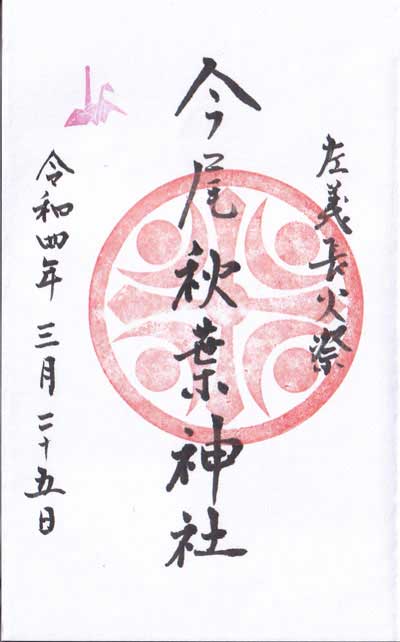 左義長火祭
今尾秋葉神社
令和四年三月二十五日